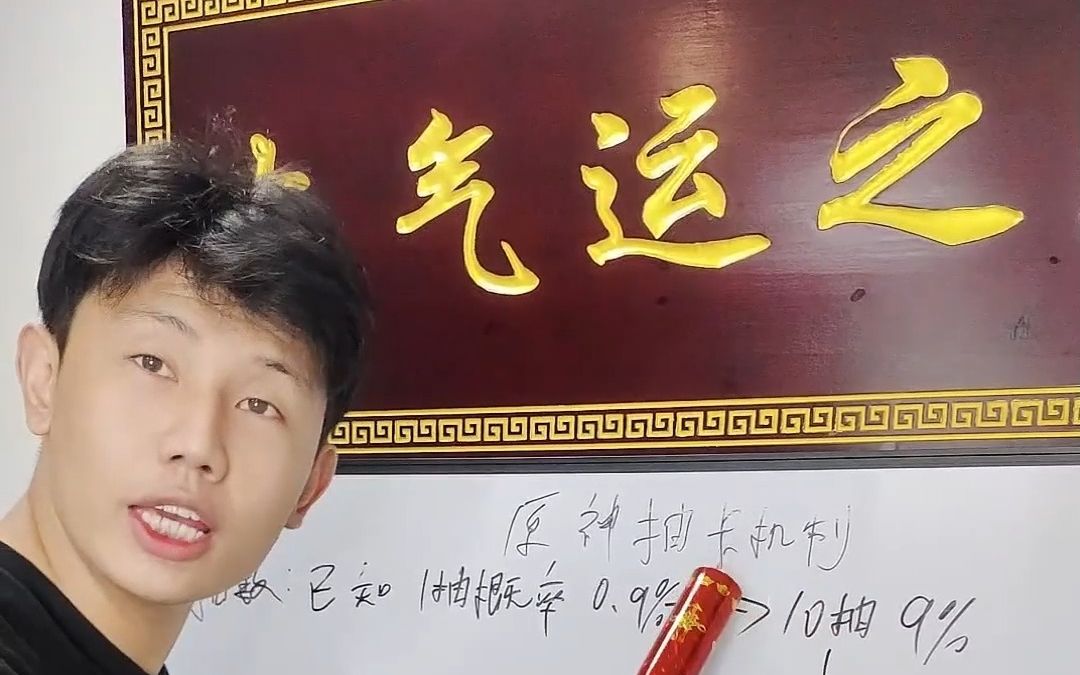 气运之
原神抽卡机制
数:已知 1抽概率 0.9% => 10抽 9%